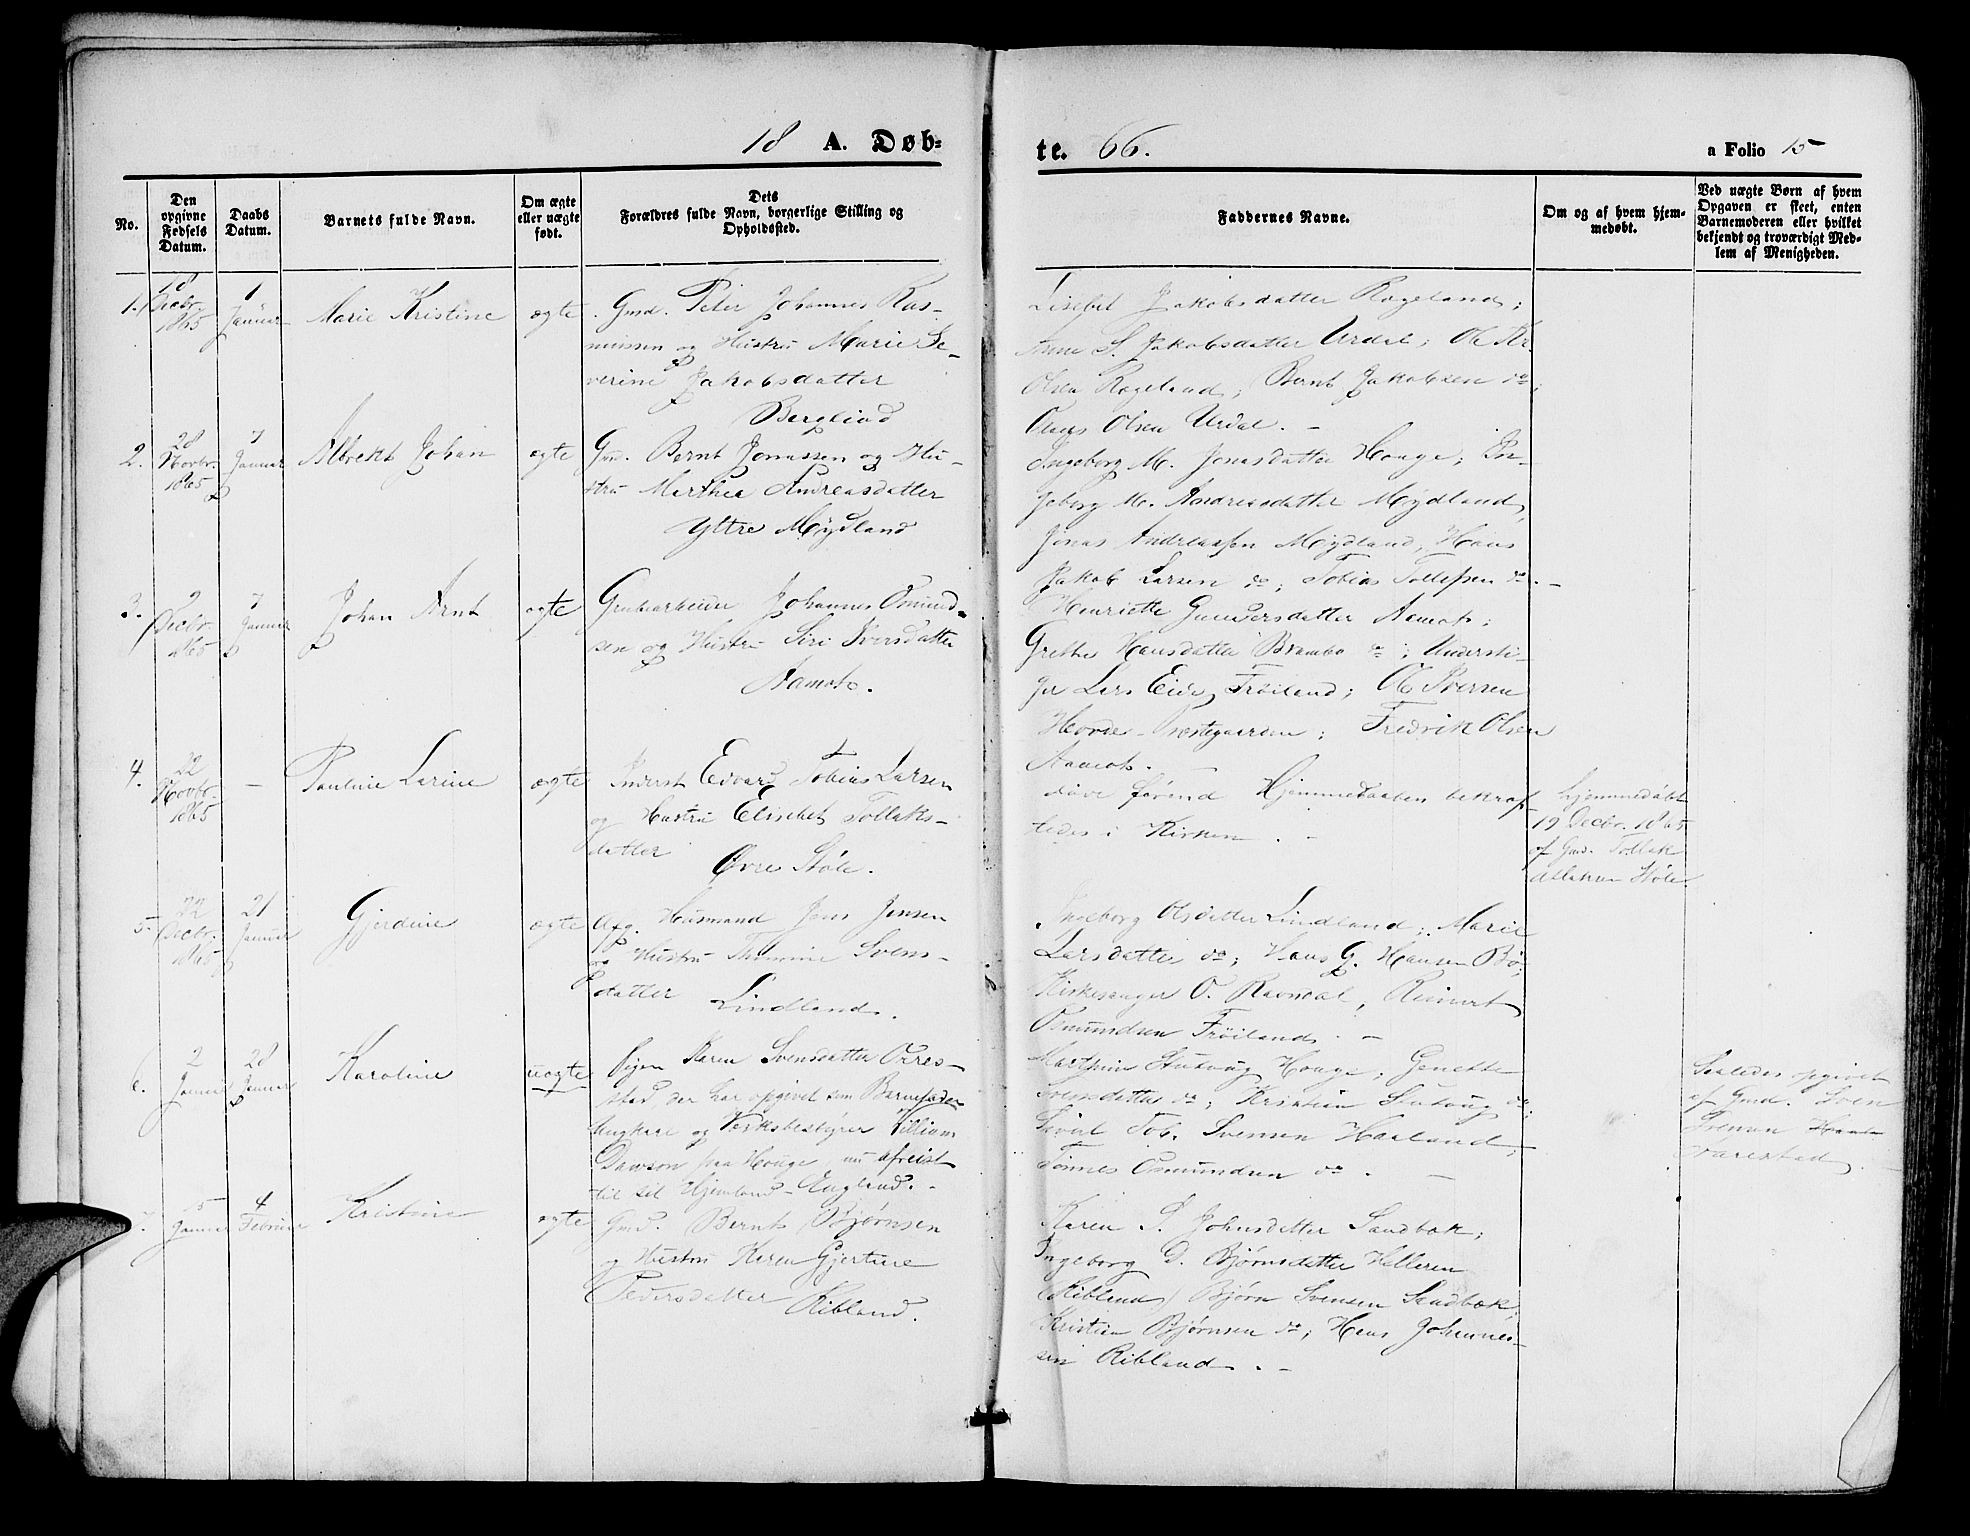 18 A. Døb-
te. 66.
a Folio 15
No.
Den opgivne Fødsels Datum.
Daabs Datum.
Barnets fulde Navn.
Om ægte eller uægte født.
Dets Forældres fulde Navn, borgerlige Stilling og Opholdssted.
Faddernes Navne.
Om og af hvem hjemmedøbt.
Ved uægte Børn af hvem Opgaven er skeet, enten Barnemoderen eller hvilket bekjendt og troværdigt Medlem af Menigheden.
1.
18 Decbr. 1865
1 Januar
Marie Kristine
ægte
Gmd. Peter Johannes Ras-
mussen og Hustru Marie Se-
verine Jakobsdatter
Berglind
Lisebet Jakobsdatter Rageland;
Anne S. Jakobsdatter Urdal; Ole Kr.
Olsen Rageland; Bernt Jakobsen do;
Olaus Olsen Urdal. –
2.
28 Novbr. 1865
7 Januar
Albrekt Johan
ægte
Gmd. Bernt Jonassen og Hu-
stru Marthea Andreasdatter
Ytre Mydland
Ingeborg M. Jonasdatter Houge; In-
geborg M. Andreasdatter Mydland,
Jonas Andreassen Mydland, Hans
Jakob Larsen do; Tobias Tollefsen do. –
3.
2 Decbr. 1865
7 Januar
Johan Arnt
ægte
Grubearbeider Johannes Osmund-
sen og Hustru Siri Iversdatter
Aamot.
Henriette Gundersdatter Aamot;
Grethe Hansdatter Brambo do; Understi-
ger Lars Eide, Frøiland; Ole Iversen
Hovde Præstegaarden; Fredrik Olsen
Aamot. –
4.
22 Novbr. 1865
–
Pauline Larine
ægte
Inderst Edvard Tobias Larsen
og Hustru Elisebet Tollaks-
datter
Øvre Støle.
Hjemmedaaben bekræf-
tedes i Kirken. –
Hjemmedøbt
19 Decbr. 1865
af Gmd. Tollak
Støle.
5.
22 Decbr. 1865
21 Januar
Gjerdine
ægte
Afg. Husmand Jens Jensen
og Hustru Thomine Svens-
datter
Lindland.
Ingeborg Olsdatter Lindland; Marie
Larsdatter do; Hans G. Hansen Bø;
Kirkesanger O. Ravndal, Reinert
Osmundsen Frøiland. –
6.
2 Januar
28 Januar
Karoline
uægte
Pigen Karen Svensdatter Orres-
stad der har opgivet som Barnefader
Ungkarl og Værksbestyrer William
Dawson fra Houge, nu afreist
til sit Hjemland – England. –
Marthin Stutvug Houge; Genette
Svensdatter do; Kristian Stutvug do;
Sivert Tob. Svensen Haaland;
Tønnes Osmundsen do. –
Saaledes opgivet
af Gmd. Sven
7.
5 Januar
4 Februar
Kristine
ægte
Gmd. Bernt Bjørnsen
og Hustru Karen Gjertine
Pedersdatter
Ribland.
Karen S. Johnsdatter Sandbæk;
Ingeborg D. Bjørnsdatter Helleren
(Ribland) Bjørn Svensen Sandbæk;
Kristian Bjørnsen do; Hans Johannes-
sen Ribland. –